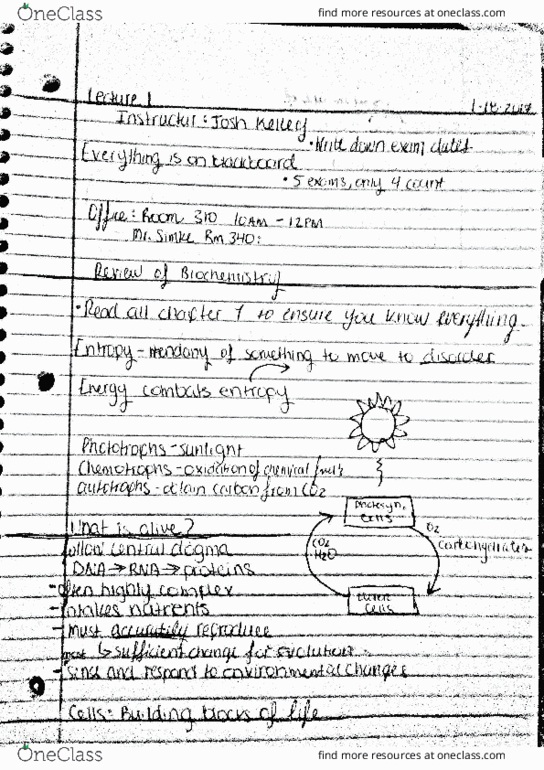 OneClass
find more resources at oneclass.com
Lecture 1
Instructor: Josh Kelley
• Write down exam dates
Everything is on blackboard
• 5 exams, only 4 count
Office: Room 310 10AM - 12PM
Mr. Simke Rm 340:
Review of Biochemistry
• Read all chapter 1 to ensure you know everything.
Entropy - tendany of something to move to disorder
Energy combats entropy
Phototrophs - sunlight
Chemotrophs - oxidation of chemical fuels
autotrophs - obtain carbon from CO2
photosyn. cells
O2
carbohydrates
CO2
H2O
cells
What is alive?
follow central dogma
DNA → RNA → proteins
- often highly complex
- intakes nutrients
- must accurately reproduce
↳ sufficient change for evolution
- sense and respond to environmental changes
Cells: Building blocks of life
OneClass
find more resources at oneclass.com